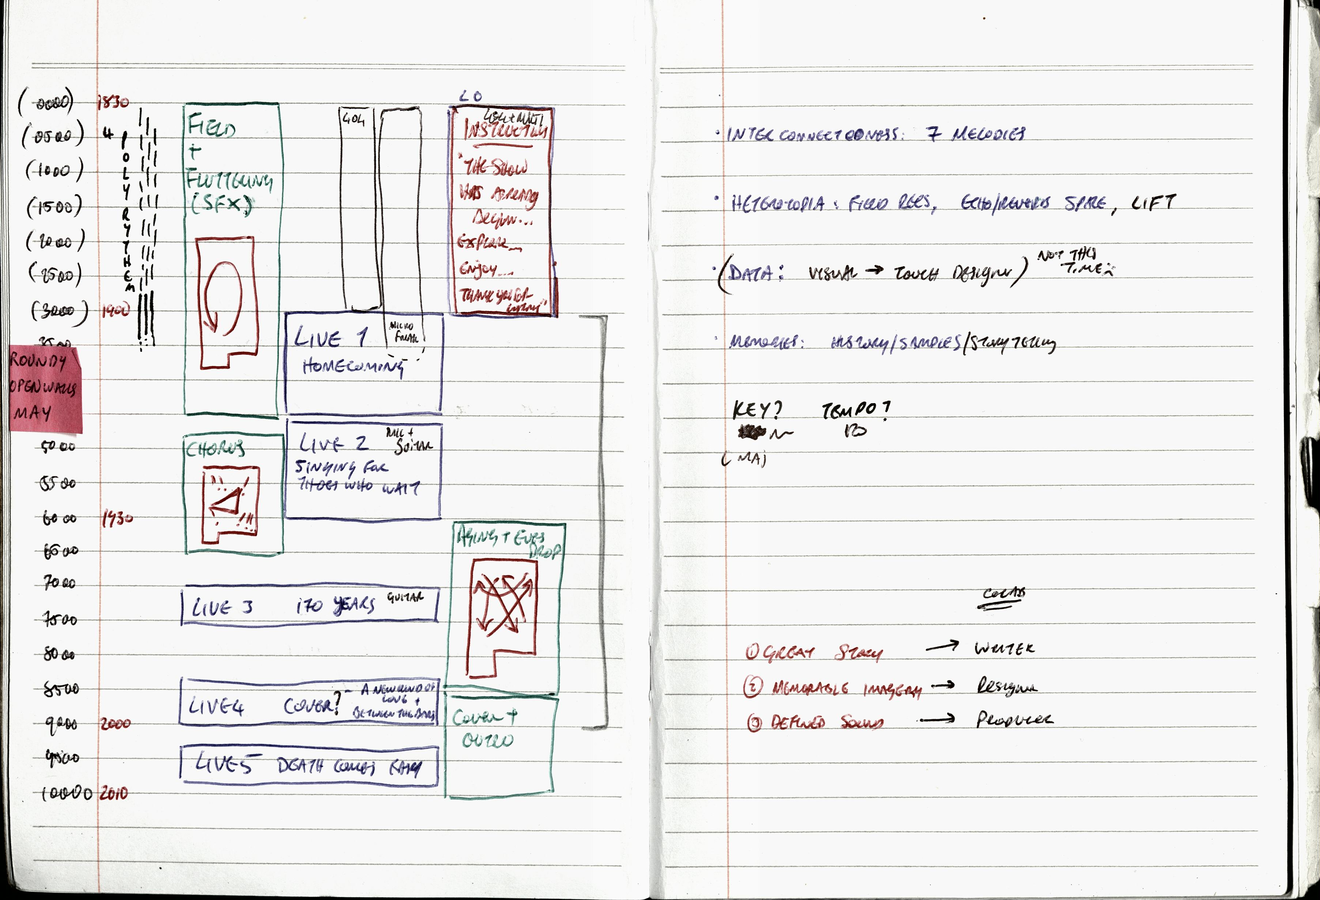 (0000) 1830
(0500) 4
(1000)
(1500)
(2000)
(2500)
(3000) 1900
POLYRYTHEM
ROUNDY
OPEN WALLS
MAY
5000
5500
6000 1930
6500
7000
7500
8000
8500
9000 2000
9500
10000 2010
FIELD
+
FLUTTERING
(SFX)
404
LO
404 + MULTI
INSTRUCTION
"THE SHOW
HAS ALREADY
BEGUN...
EXPLORE...
ENJOY....
THANK YOU FOR
LIVE 1
HOMECOMING
MICRO
CHORUS
LIVE 2
SINGING FOR
THOSE WHO WAIT
GUITAR
AGING + EVES
DROP
LIVE 3 170 YEARS GUITAR
LIVE 4 COVER? - A NEW KIND OF
LOVE +
BETWEEN THE BARS
COVER +
OUTRO
LIVE 5 DEATH COMES
· INTERCONNECTEDNESS: 7 MELODIES
· HETEROTOPIA: FIELD RECS, ECHO/REVERB SPACE, LIFT
· (DATA: VISUAL → TOUCH DESIGNER) NOT THIS
TIME
· MEMORIES: HISTORY/SAMPLES/STORYTELLING
KEY? TEMPO?
MAJ
COLLABS
① GREAT STORY → WRITER
② MEMORABLE IMAGERY → DESIGNER
③ DEFINED SOUND → PRODUCER